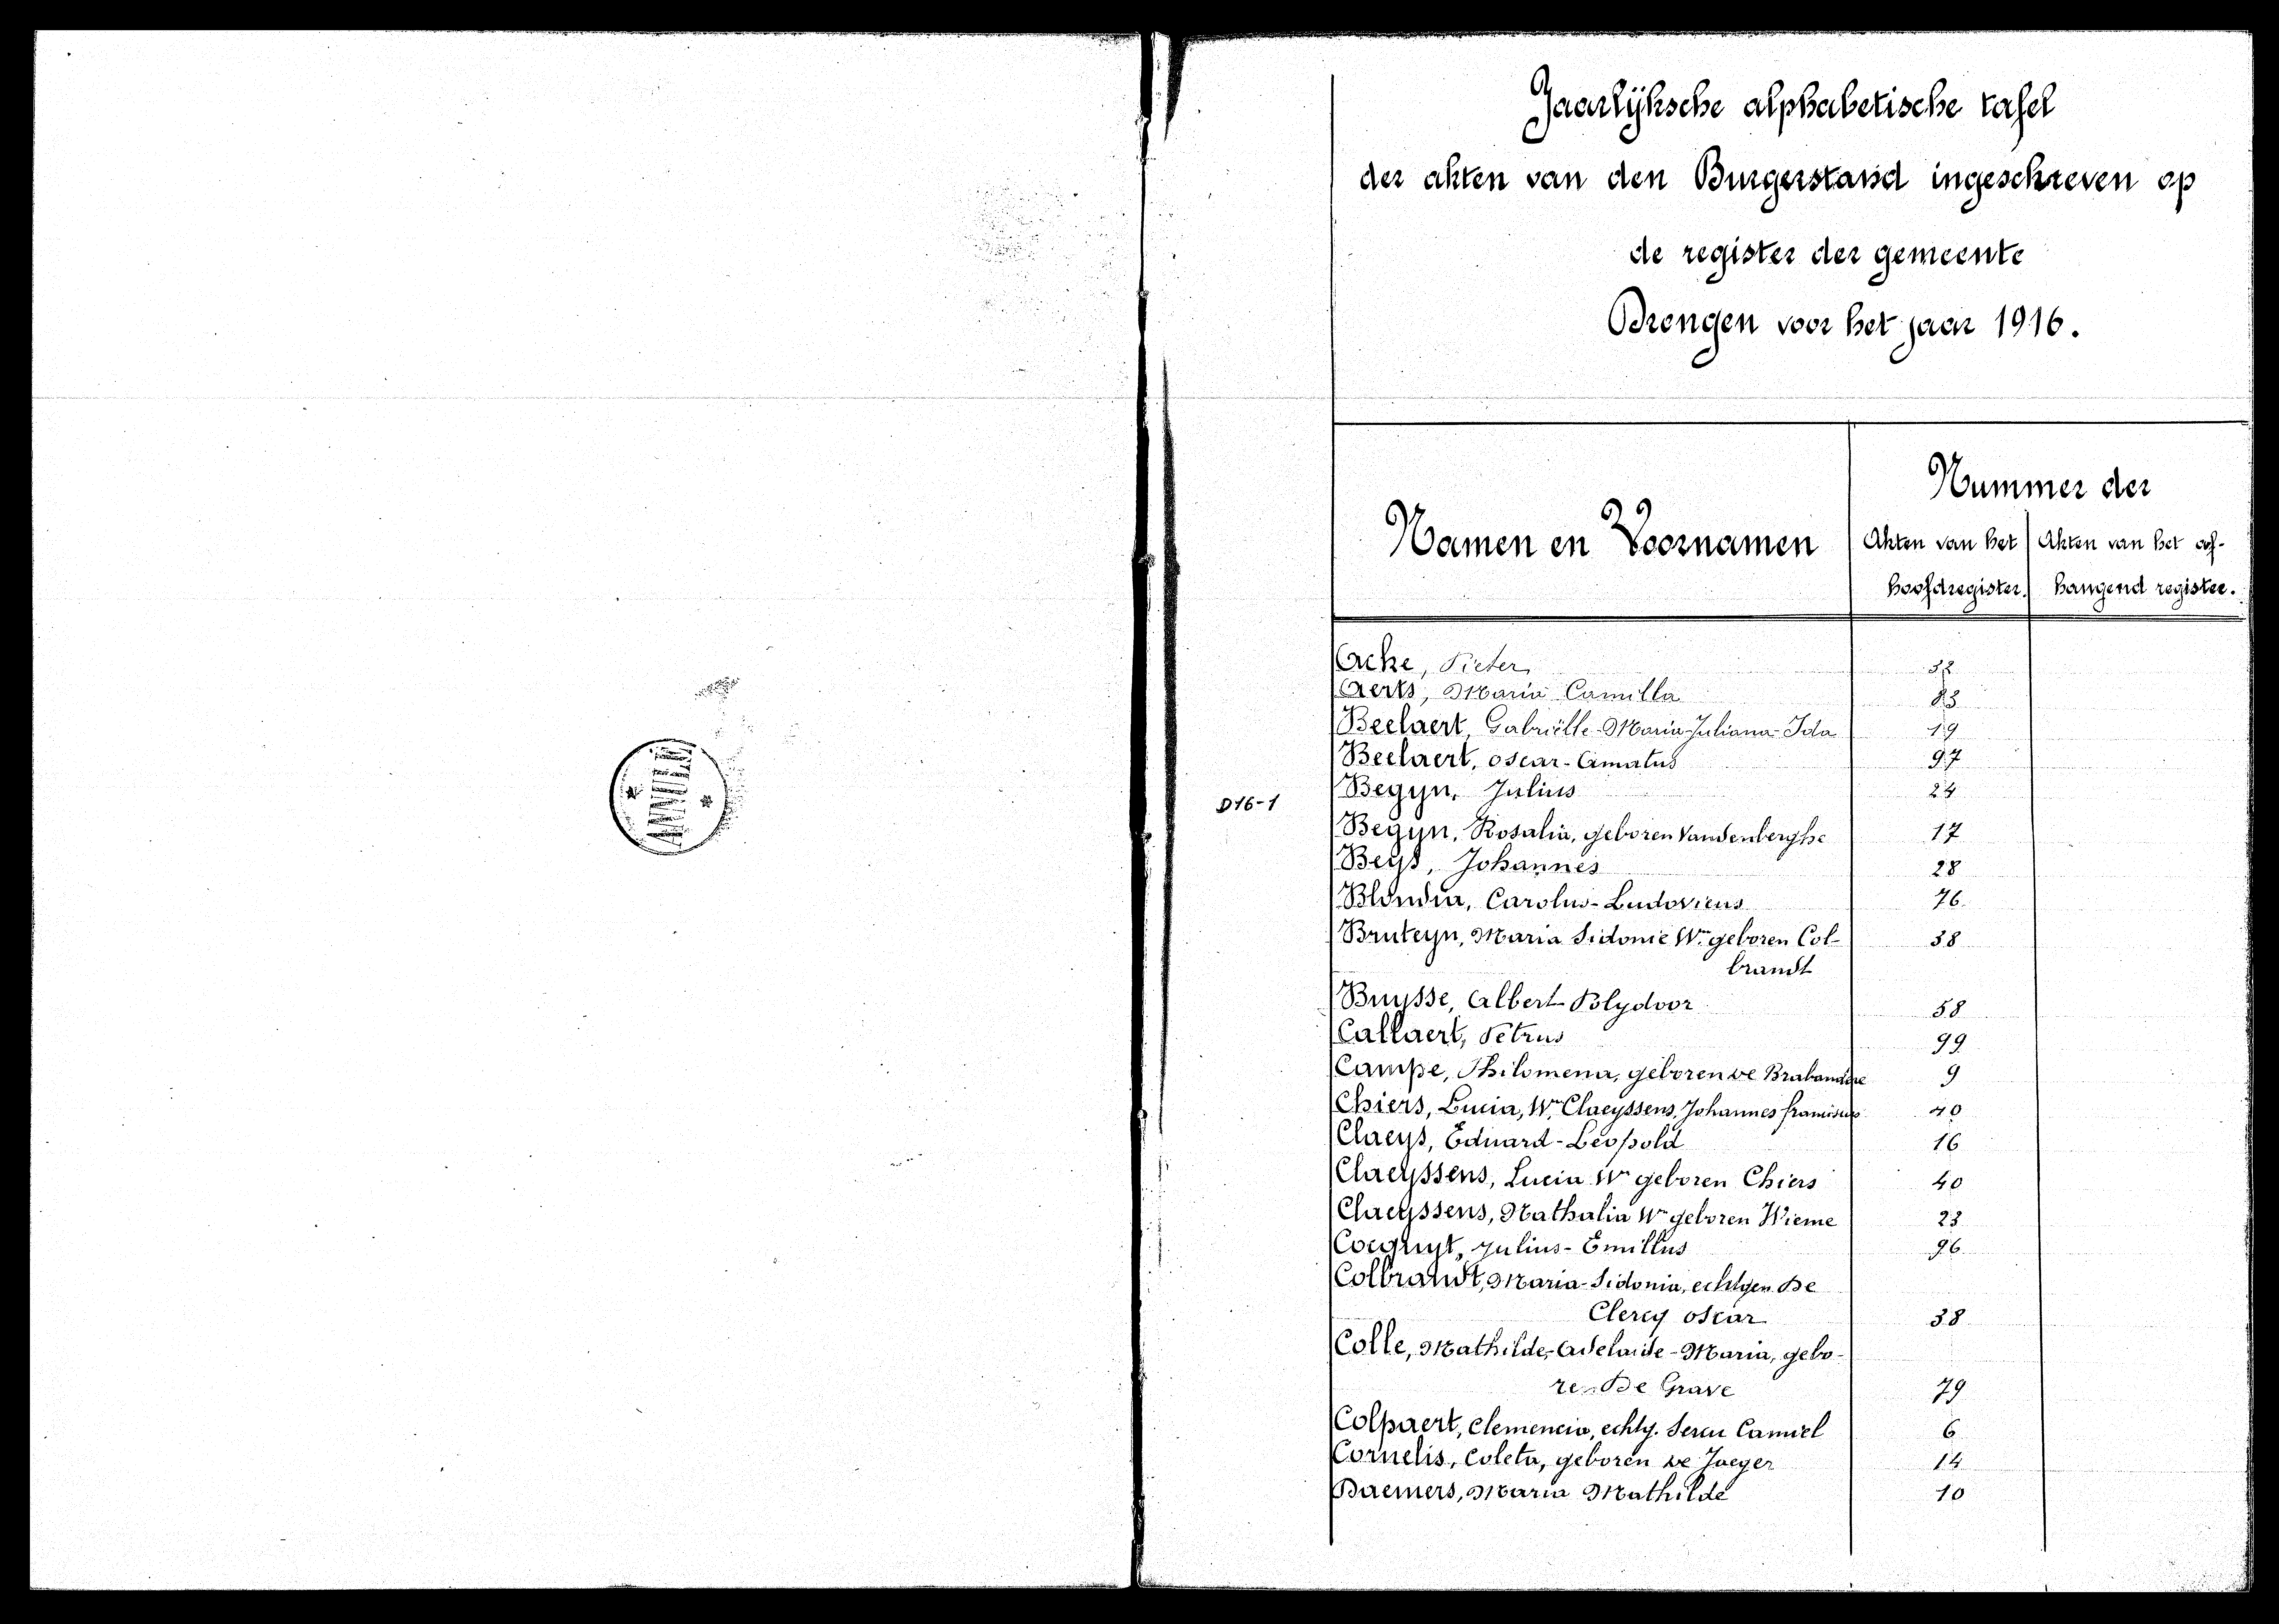 Jaarlijksche alphabetische tafel
der akten van den Burgerstand ingeschreven op
de register der gemeente
Drongen voor het jaar 1916.
Namen en Voornamen
Nummer der
Akten van het hoofdregister.
Akten van het af-
hangend register.
D16-1
Acke, Pieter 32
Aerts, Maria Camilla 83
Beelaert, Gabriëlle-Maria-Juliana-Ida 19
Beelaert, Oscar-Amatus 97
Begyn, Julius 24
Begyn, Rosalia, geboren Vandenberghe 17
Beys, Johannes 28
Blondia, Carolus-Ludovicus 76
Bruteyn, Maria Sidonie Wwe geboren Col- 38
brandt
Buysse, Albert Polydoor 58
Callaert, Petrus 99
Campe, Philomena, geboren De Brabandere 9
Chiers, Lucia, Wwe Claeyssens, Johannes franciscus 40
Claeys, Eduard-Leopold 16
Claeyssens, Lucia Wwe geboren Chiers 40
Claeyssens, Nathalia Wwe geboren Wieme 23
Cocquyt, Julius-Emillus 96
Colbrandt, Maria-Sidonia, echtgen. De
Clercq Oscar 38
Colle, Mathilde-Adelaide-Maria, gebo-
ren De Grave 79
Colpaert, Clemencia, echtg. Sercu Camiel 6
Cornelis, Coleta, geboren De Jaeger 14
Daemers, Maria Mathilde 10